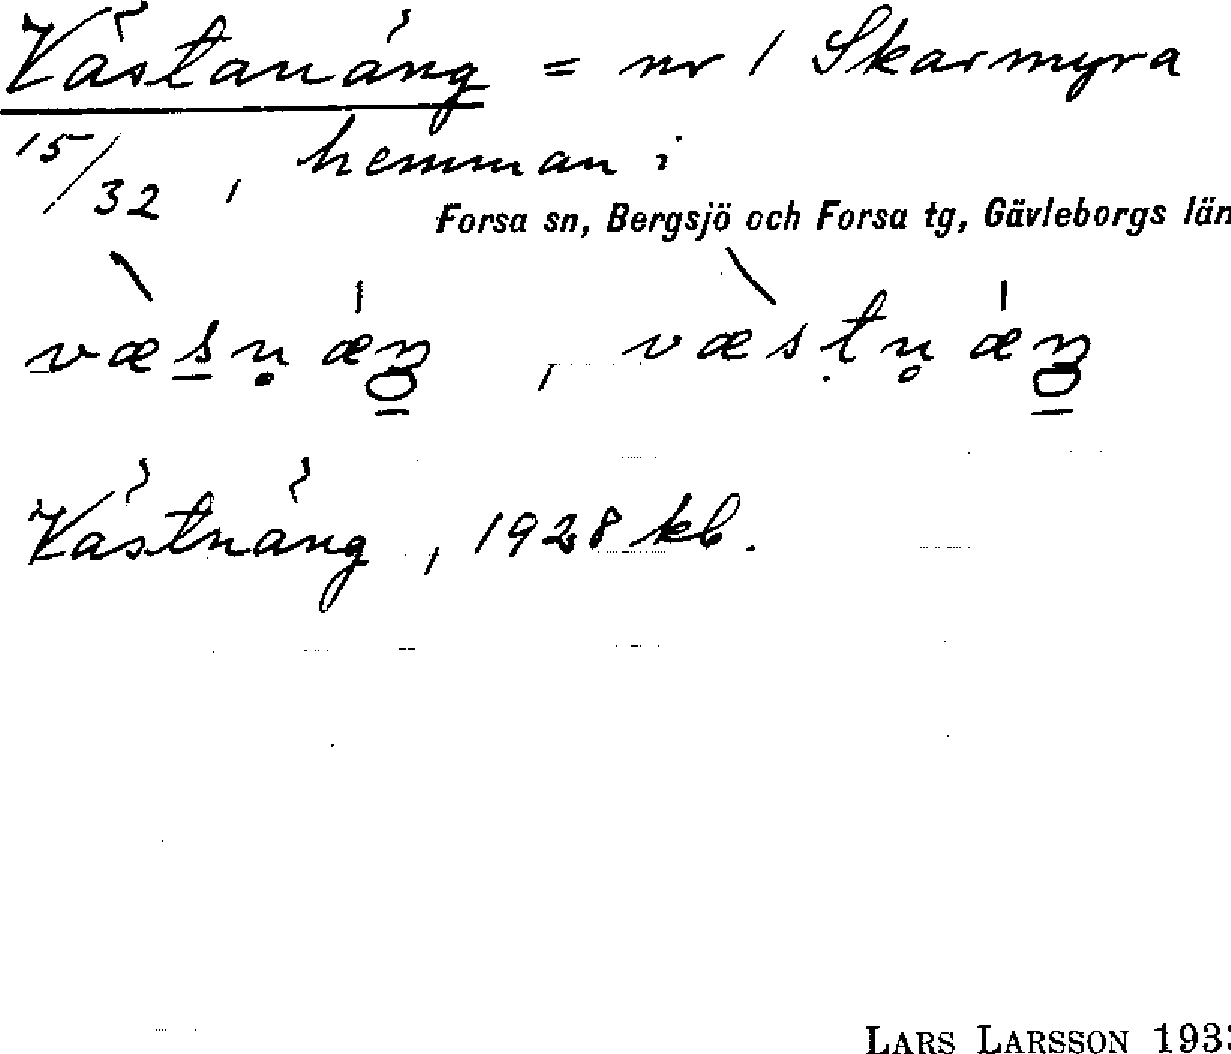 Västanäng = nr 1 Skarmyra
15/32, hemman i
Forsa sn, Bergsjö och Forsa tg, Gävleborgs län
væ̀sn̥ǽŋ, væ̀stn̥ǽŋ
Västnäng, 1928 kb.
LARS LARSSON 193